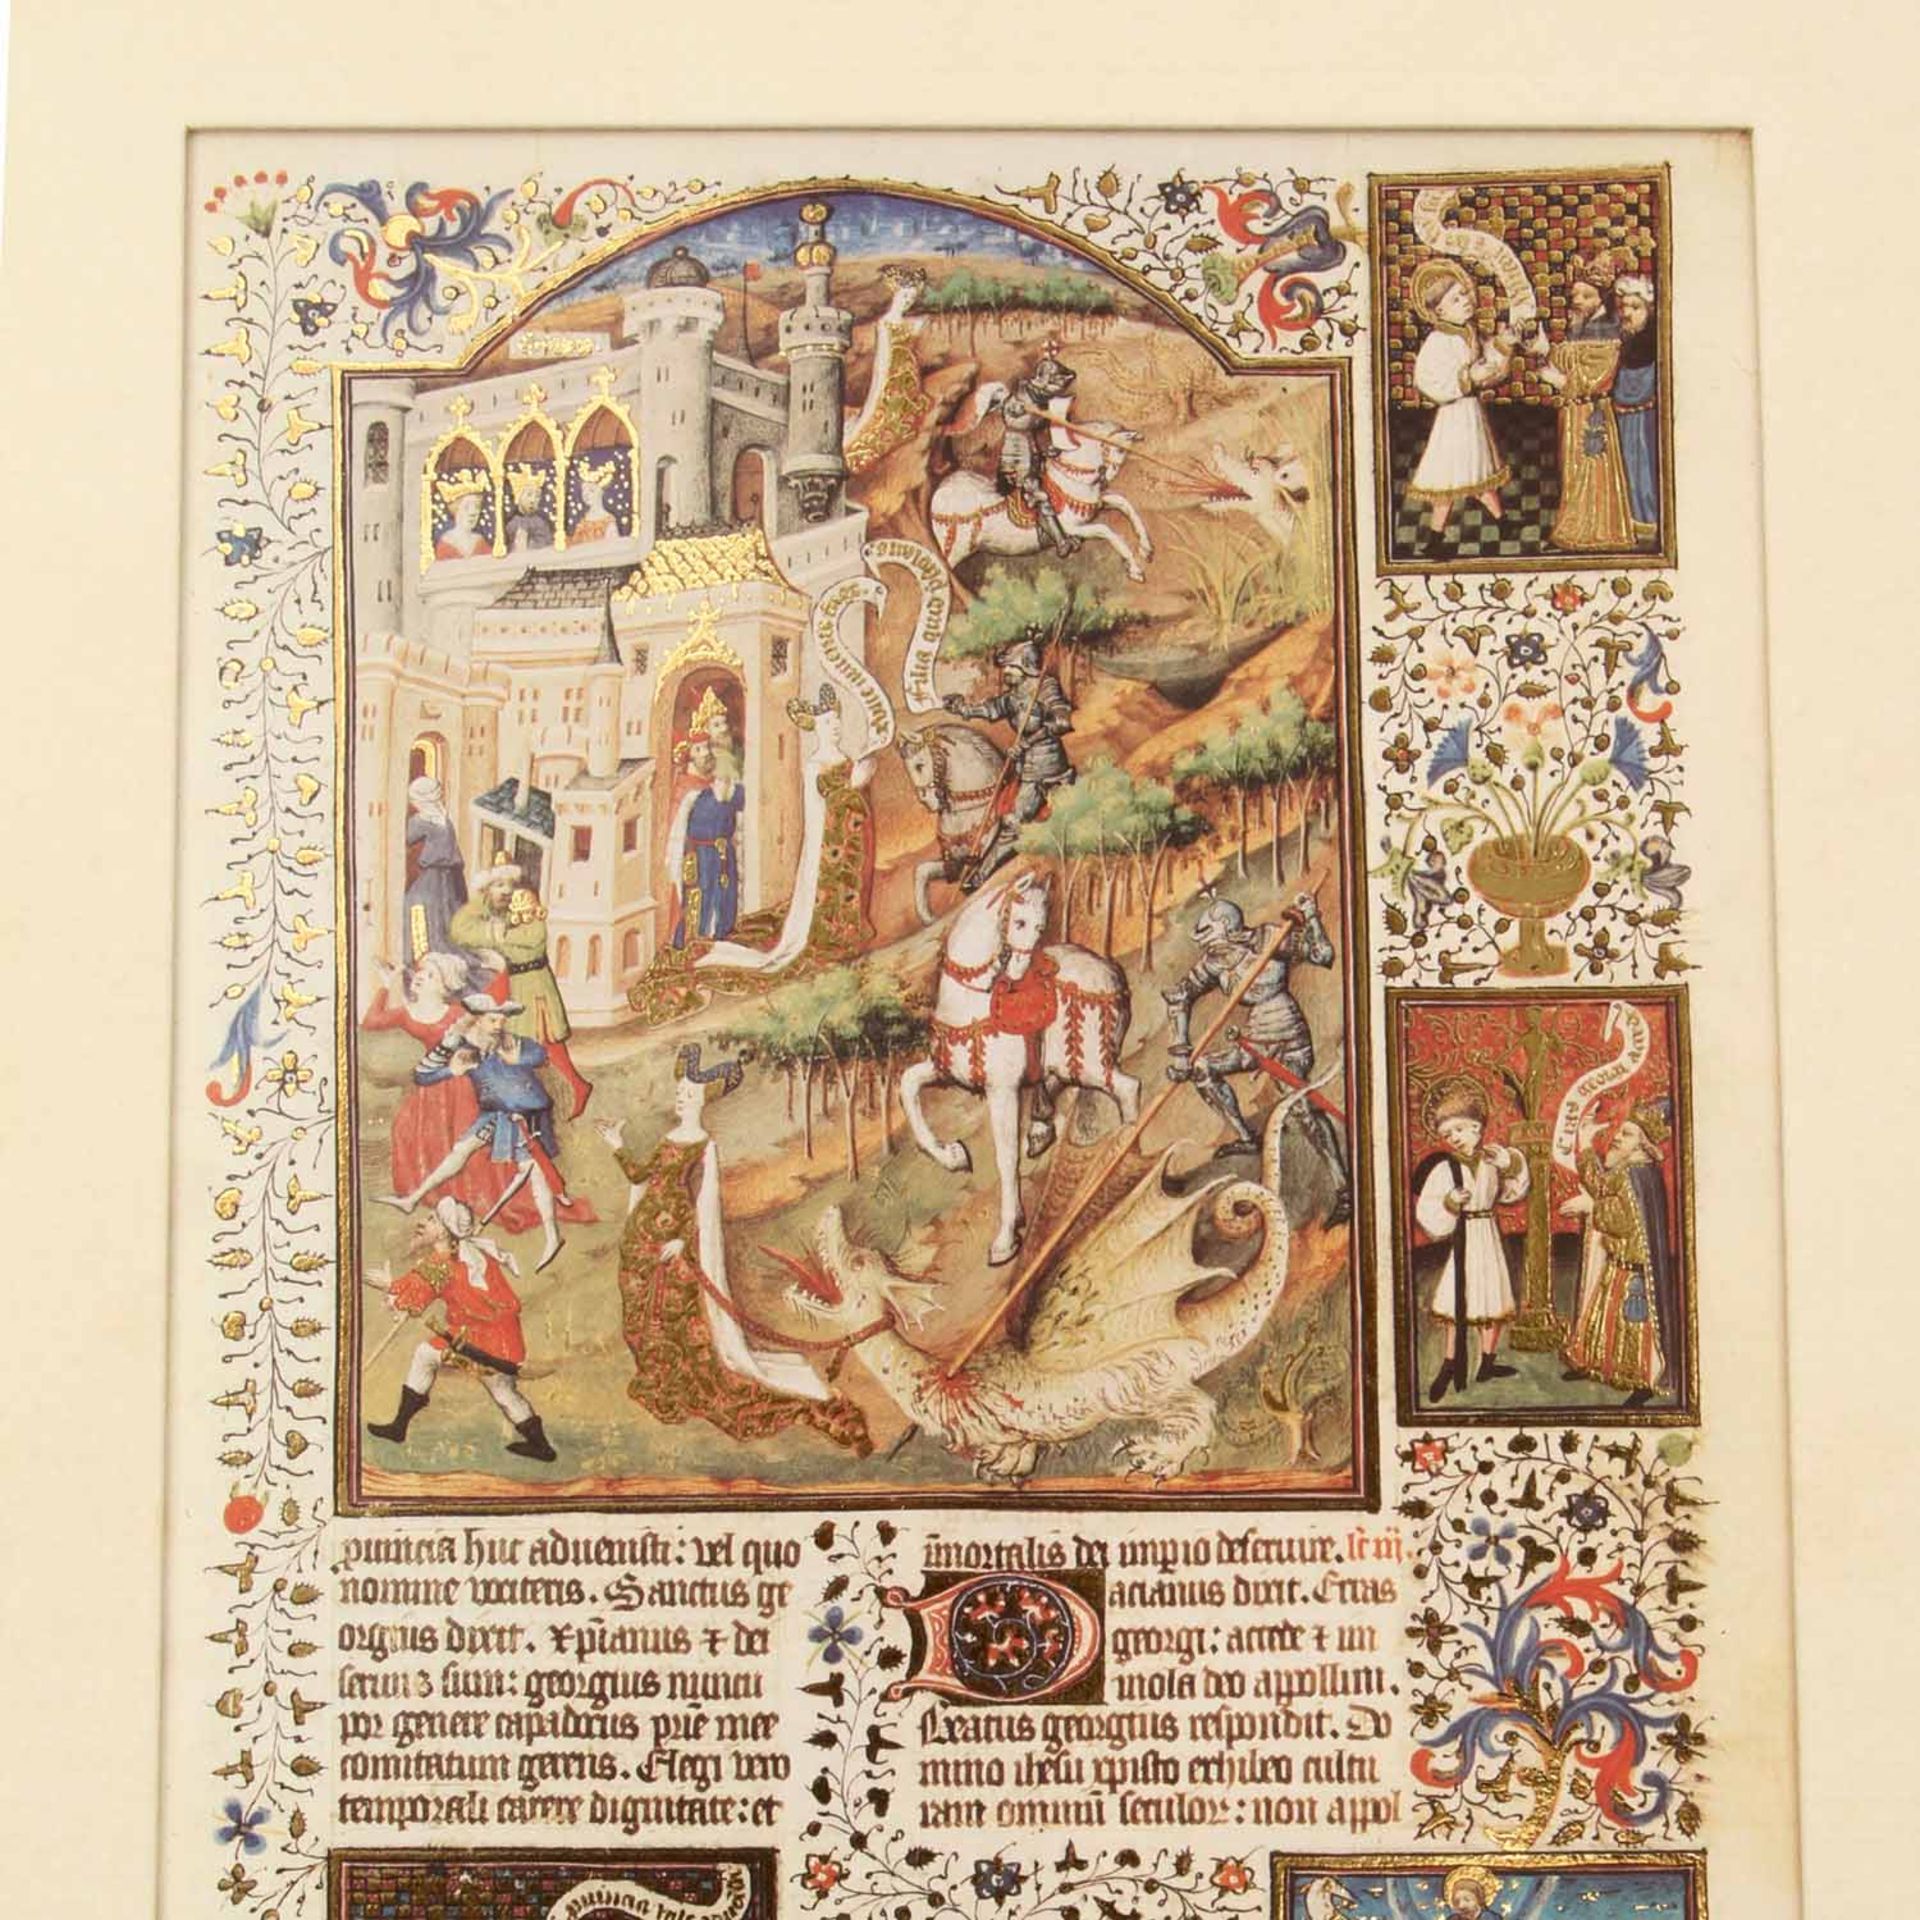 uincia huc aduenisti: vel quo
nomine uociteris. Sanctus ge
orgius dixit. xp̄ianus ⁊ dei
seruus sum: georgius nuncu
por genere capadocus
comitatum gerens. Elegi vero
temporali carere dignitate: et
īmortalis dei impio deseruire. lc̄ iij.
Dacianus dixit. Erras
georgi: accede ⁊ im
mola deo appollini.
Beatus georgius respondit. Do
mino ihesu xpisto exhibeo cultu
ram omniū seculoꝝ: non appol
Filia quid